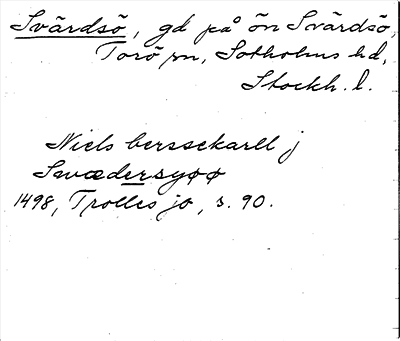 Svärdsö, gd på ön Svärdsö,
Torö sn, Sotholms hd,
Stockh. l.
Niels berssekarll j
Swædersyøø
1498, Trolles jo, s. 90.